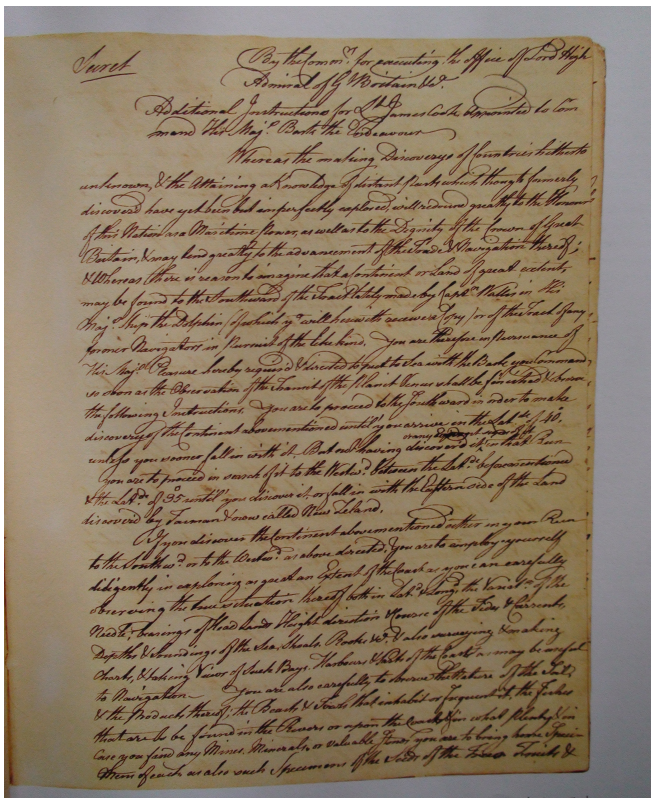 Secret
By the Comm.rs for executing the office of Lord High
Admiral of G.t Britain &c.a
Additional Instructions for L.t James Cook appointed to Com
mand His Maj.s Bark the Endeavour
Whereas the making Discoverys of Countries hitherto
unknown, & the Attaining a Knowledge of distant Parts which though formerly
discover'd have yet been but imperfectly explored, will redound greatly to the Honour
of this Nation as a Maritime Power, as well as to the Dignity of the Crown of Great
Britain, & may tend greatly to the advancement of the Trade & Navigation thereof;
& Whereas there is reason to imagine that a Continent or Land of great extent,
may be found to the Southward of the Tract lately made by Capt.n Wallis in His
Maj.s Ship the Dolphin (of which you will herewith receive a Copy) or of the Tract of any
former Navigators in Pursuit of the like kind, You are therefore in Pursuance of
His Maj.s Pleasure hereby requir'd & directed to put to Sea with the Bark you command,
so soon as the Observation of the Transit of the Planet Venus shall be finished & observe
the following Instructions. You are to proceed to the Southward in order to make
discovery of the Continent abovementioned until you arrive in the Lat.de of 40.,
unless you sooner fall in with it. But not having discover'd it in that Run
you are to proceed in search of it to the Westw.d between the Lat.de beforementioned
& the Lat.de of 35 until you discover it, or fall in with the Eastern side of the Land
discover'd by Tasman & now called New Zeland.
If you discover the Continent abovementioned either in your Run
to the Southw.d or to the Westw.d as above directed, You are to employ yourself
diligently in exploring as great an Extent of the Coast as you can carefully
observing the true situation thereof both in Lat.de & Long.de the Variat.n of the
Needle, bearings of Head Lands Height direction & Course of the Tides & Currents,
Depths & Soundings of the Sea, Shoals, Rocks &c.a & also surveying & making
Charts, & taking Views of Such Bays, Harbours & Parts of the Coast as may be useful
to Navigation. You are also carefully to observe the Nature of the Soil,
& the Products thereof; the Beasts & Fowls that inhabit or frequent it, the Fishes
that are to be found in the Rivers or upon the Coast & in what Plenty & in
Case you find any Mines, Minerals, or valuable Stones, you are to bring home Speci
mens of each as also such Specimens of the Seeds of the Trees Fruits &